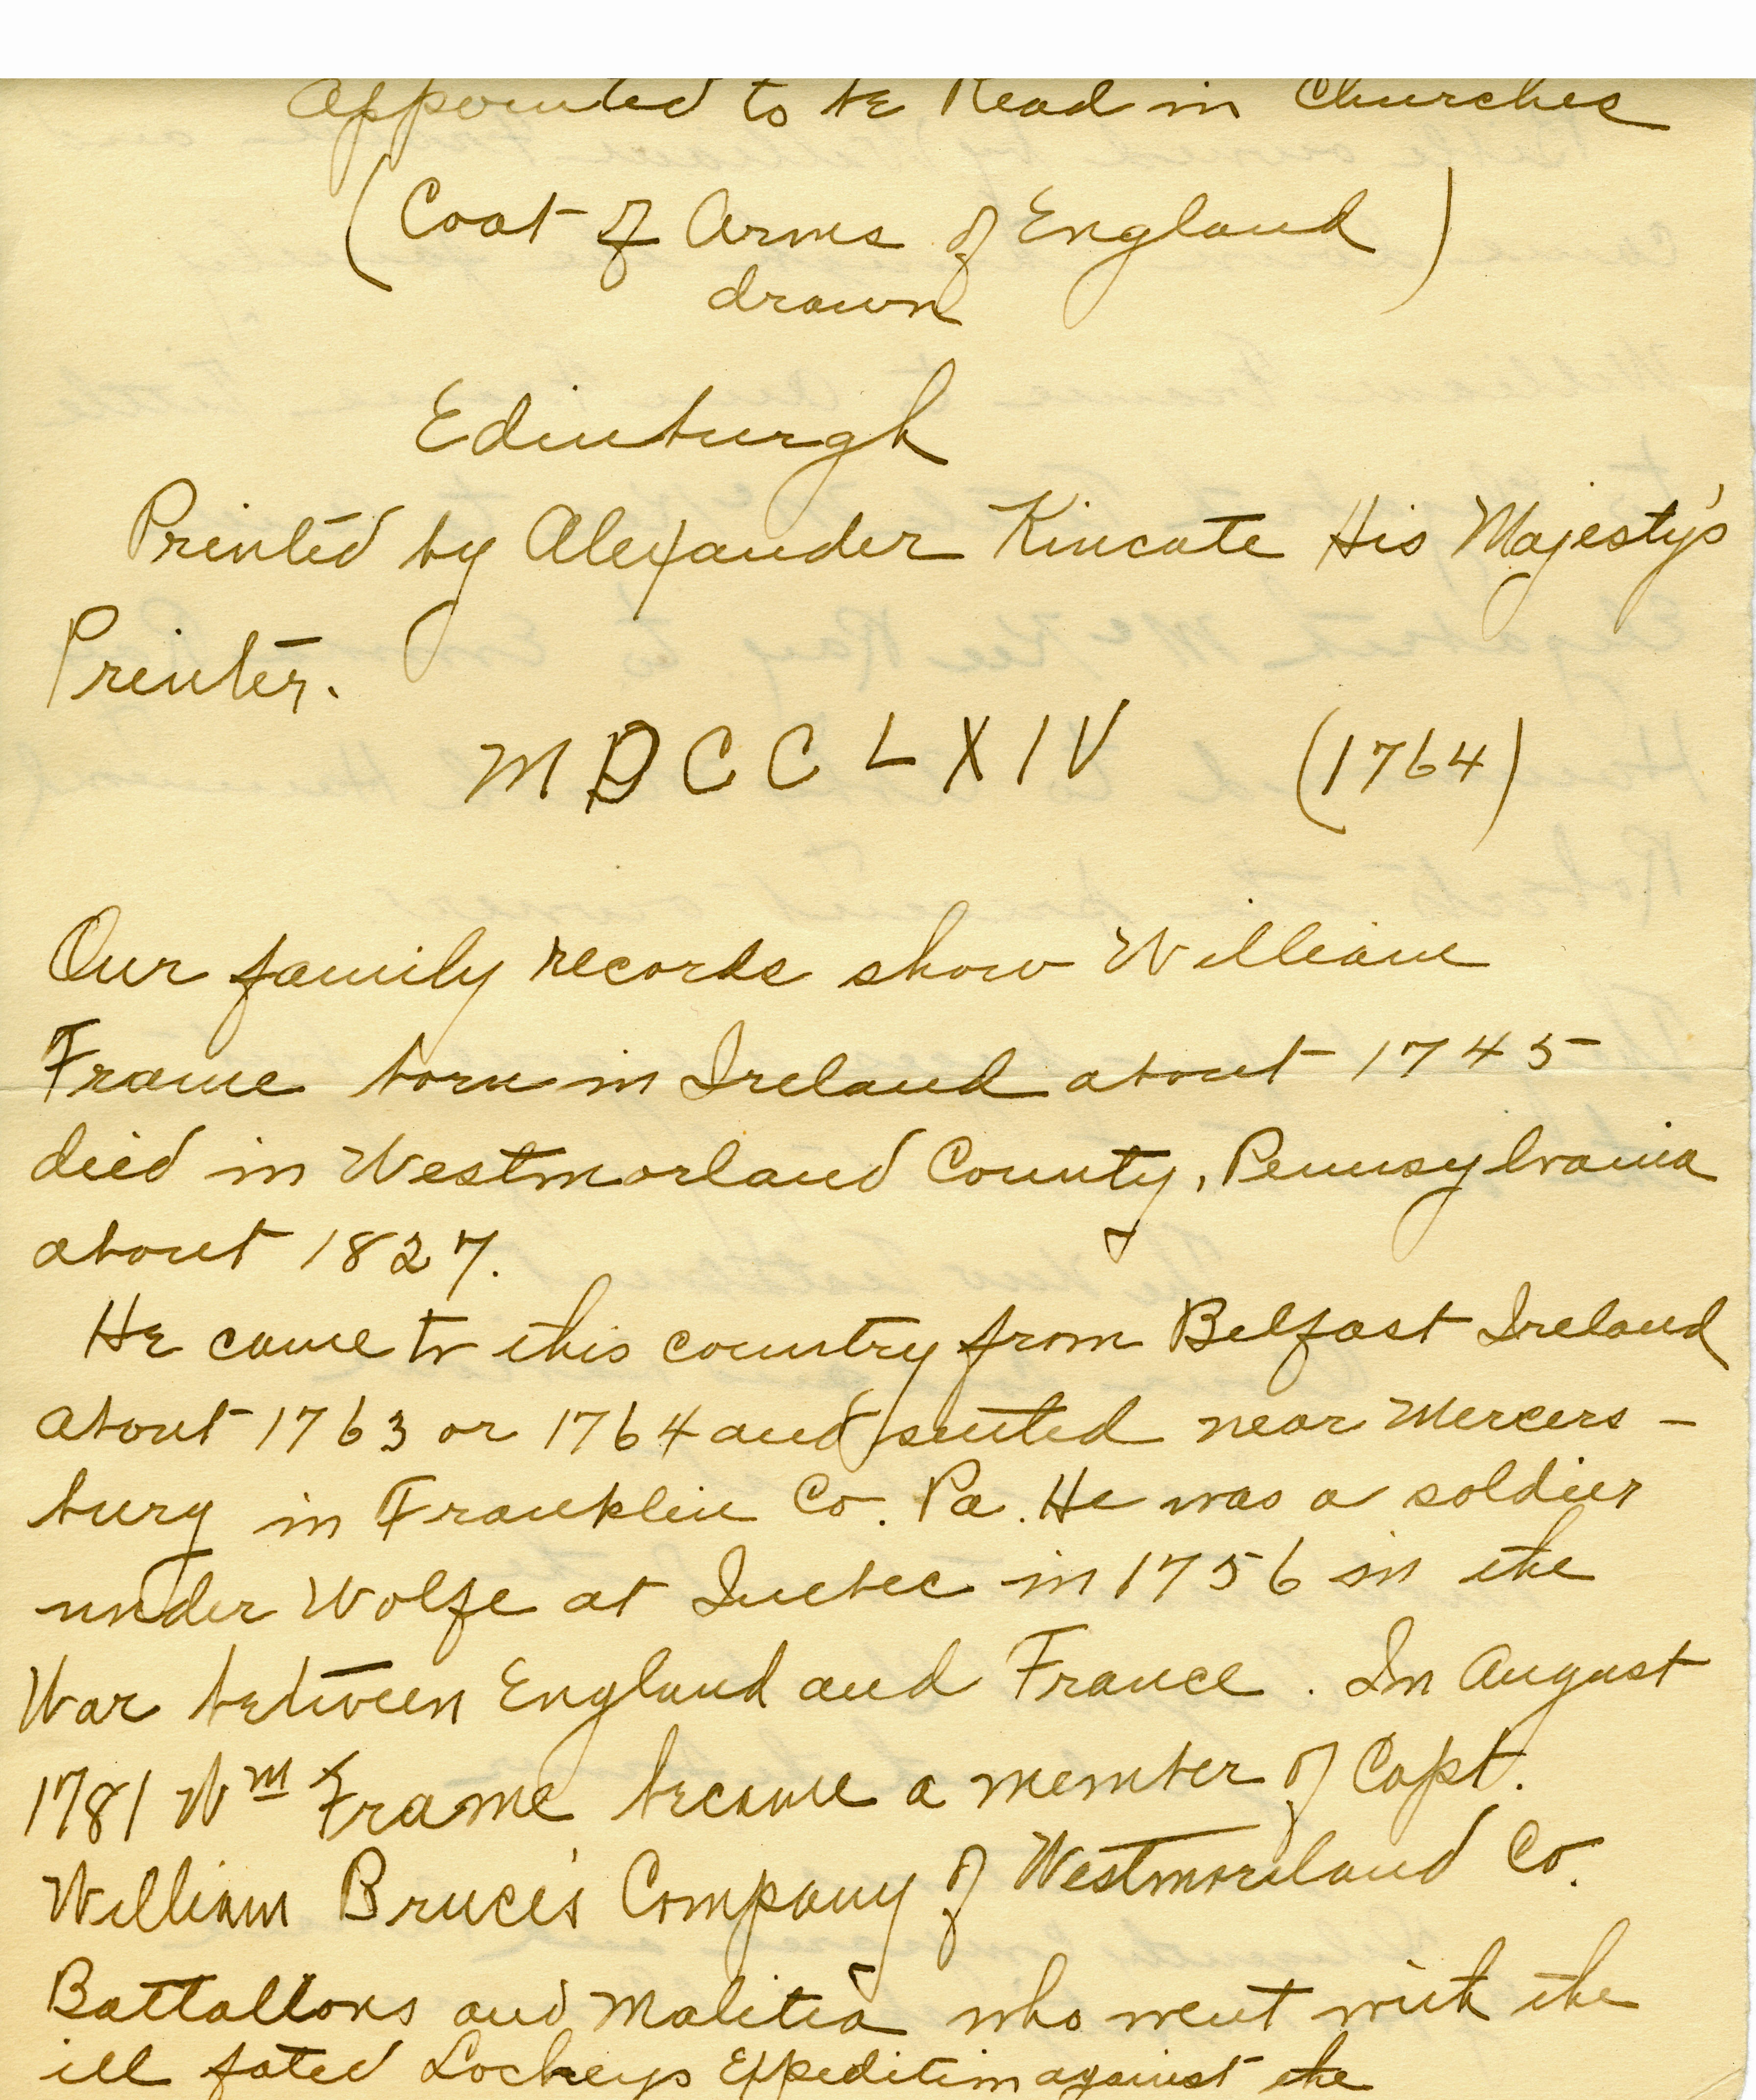 Appointed to be Read in Churches
(Coat of Arms of England)
drawn
Edinburgh
Printed by Alexander Kincate His Majesty's
Printer.
MDCCLXIV (1764)
Our family records show William
Frame born in Ireland about 1745
died in Westmorland County, Pennsylvania
about 1827.
He came to this country from Belfast Ireland
about 1763 or 1764 and settled near Mercers-
burg in Franklin Co. Pa. He was a soldier
under Wolfe at Quebec in 1756 in the
War between England and France. In August
1781 Wm Frame became a member of Capt.
William Bruce's Company of Westmoreland Co.
Battallons and Malitia who went with the
ill fated Locheys Expedition against the